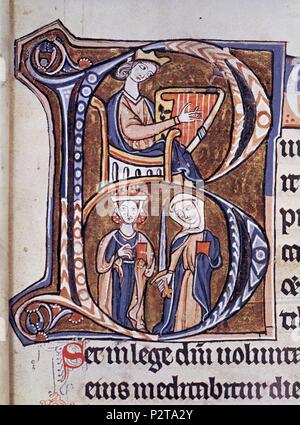 B
Set in lege dñi uolunta
eius meditabitur die
alamy
Image ID: P2TA2Y
www.alamy.com